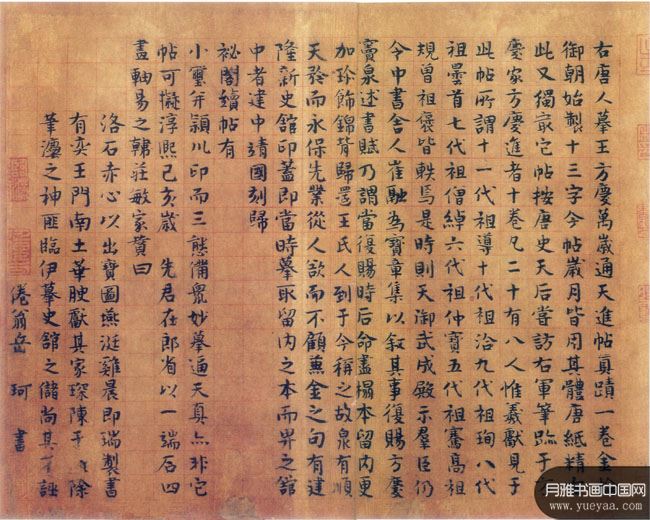 右唐人摹王方慶萬歲通天進帖真蹟一卷金輪
御朝始製十三字今帖歲月皆用其體唐紙精
此又獨最它帖按唐史天后嘗訪右軍筆蹟于
慶家方慶進者十卷凡二十有八人惟羲獻見于
此帖所謂十一代祖導十代祖洽九代祖珣八代
祖曇首七代祖僧綽六代祖仲寶五代祖騫高祖
規曾祖褒皆軼焉是時則天御武成殿示羣臣仍
令中書舍人崔融為寶章集以叙其事復賜方慶
竇泉述書賦乃謂當復賜時后命盡搨本留内更
加珍飾錦背歸還王氏人到于今稱之故泉有順
天矜而永保先業從人欲而不顧兼金之句有建
隆新史館印蓋即當時摹取留内之本而畀之館
中者建中靖國刻歸
祕閣續帖有
小璽并潁川印而三態備衆妙摹逼天真亦非它
帖可擬淳熙己亥歲 先君在郎省以一端石四
畫軸易之韓莊敏家贊曰
洛石赤心以出寶圖燕涎雞晨即瑞製書
有奕王門南土華腴獻其家琛陳于 除
筆瀍之神匪臨伊摹史館之儲尚其 誣
倦翁岳 珂 書
月雅书画中国网
www.yueyaa.com